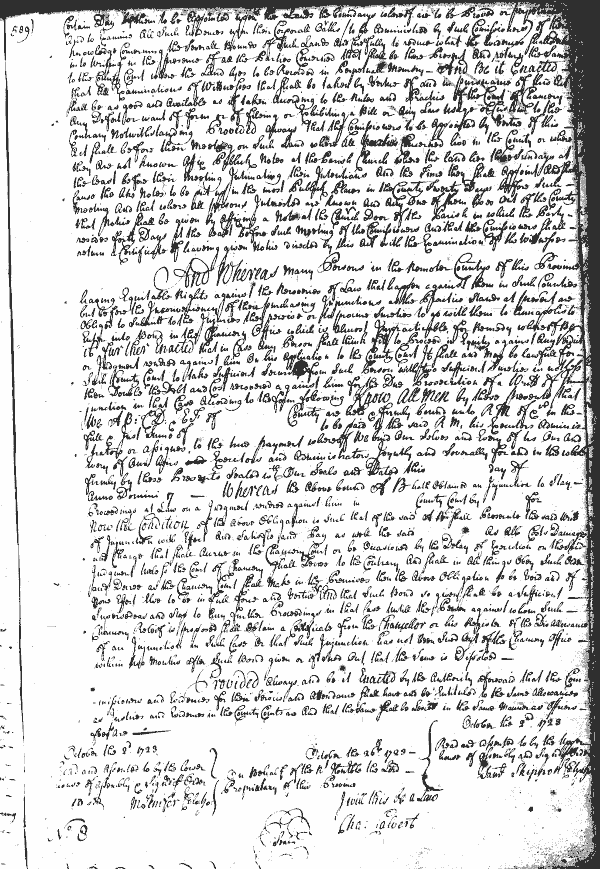 589)
Certain Day by them to be Appointed upon the Lands the boundary whereof are to be Proved or perpetuated
And to Examine All Such Evidences upon their Corporall Oaths (to be Administred by Such Comissioners) of their
Knowledge Concerning the Severall Bounds of Such Lands And carefully to reduce what the Evidences shall
into Writing in the presence of all the Parties Concerned that shall be then Present And return the Same
to the County Court where the Land lyes to be Recorded in Perpetuall Memory — And be it Enacted
that All Examinations of Witnesses that shall be taken by Vertue of and in Pursuance of this Act
shall be as good and Available as if taken According to the Rules and Practice of the Court of Chancery
Any Defect or want of Form or of filing or Exhibiting a Bill or Any Law Usage or Custom to the
Contrary Notwithstanding Provided Always That the Comissioners to be Appointed by Vertue of this
Act shall before their Meeting on Such Land where All Concerned live in the County or where
they Are not known Affix Publick Notes at the Parish Church where the land lies three Sundays at
the least before their Meeting Intimating their Intentions And the time they shall Appoint And shall
Cause the like Notes to be put up in the most Publick Places in the County Twenty Days before Such
Meeting And that where All persons Interested are known And Any One of them lives Out of the County
that Notice shall be given by Affixing a Note at the Church Door of the Parish in which the Party
resides forty Days at the least before Such Meeting of the Comissioners And that the Comissioners shall
return a Certificate of having given Notice directed by this Act with the Examination of the Witnesses
And Whereas many Persons in the Remoter Countys of this Province
having Equitable Rights against the Rigorous of Law that happen against them in Such Counties
but before the Inconveniency of their purchasing Injunctions as the Practice Stands at present are
Obliged to Submitt to the Injuries they receive or his procure Sureties to go with them to Annapolis to
Enter into Bond in the Chancery Office which is Almost Impracticable for Remedy whereof Be
it further Enacted that in Case Any Person shall think fitt to Proceed in Equity against Any Verdict
or Judgment rendered against him On his Application to the County Court It shall and may be lawfull for
Such County Court to take Sufficient Security from Such Person with two Sufficient Sureties in not less
then Double the Debt and Cost recovered against him for the Due Prosecution of a Writt of In-
junction in that Case According to the form following Know All Men by these presents that
We A: B: C: D: E: F of County are held & firmly bound unto R. M of C in the
full & Just Sume of to be paid to the said R. M, his Executors Adminis-
trators or Assignes, to the true payment whereof We bind Our Selves and Every of us Our And
every of Our heirs Executors and Administrators Joyntly and Severally for and in the whole
firmly by these Presents Sealed wth Our Seals and Dated this day of
Anno Domini 17 — Whereas the Above bound A B hath Obtained an Injunction to Stay
Proceedings at Law on a Judgment rendered against him in County Court by for
Now the Condition of the Above Obligation is Such that if the said A B shall Prosecute the said Writt
of Injunction with Effect And Satisfie and Pay as well the said As Also Costs Damages
and Charge that shall Accrue in the Chancery Court or be Occasioned by the Delay of Execution on the said
Judgment Unless the Court of Chancery shall Decree to the Contrary And shall in All things Obey Such Order
and Decree as the Chancery Court shall Make in the Premisses then the Above Obligation to be Void and of
None Effect Else to be in full force and Vertue And that Such Bond so given shall be a Sufficient
Supersedeas and Stop to Any further Proceedings in that Case Untill the Person against whom Such
Chancery Relief is proposed shall Obtain a Certificate from the Chancellor or his Register of the Disallowance
of an Injunction in Such Case Or that Such Injunction has not been Sued Out of the Chancery Office
within two Months After Such Bond given or if Sued Out that the Same is Dissolved —
Provided Always and be it Enacted by the Authority aforesaid that the Com-
missioners and Evidences for their Services and Attendance shall have and be Entituled to the Same Allowances
as Justices and Evidences in the County Courts are And that the Same shall be Levied in the Same Manner as Officers
fees Are —
October the 2d 1728
Read and Assented to by the Lower
house of Assembly & Signed p Order
Mich: Jenifer Cl lo ho
October the 26th 1728
On behalf of the Rt Honble the Lord
Proprietary of this Province
I will this be a Law
Cha: Calvert
October the 2d 1728
Read and Assented to by the Upper
house of Assembly and Signed p Order
Saml Skippon
No 8
Seal